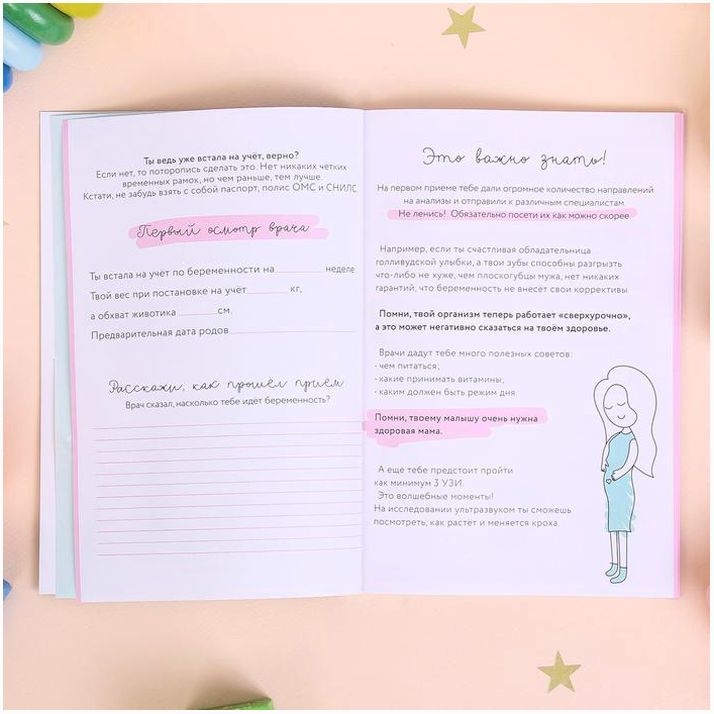 Ты ведь уже встала на учёт, верно?
Если нет, то поторопись сделать это. Нет никаких четких
временных рамок, но чем раньше, тем лучше.
Кстати, не забудь взять с собой паспорт, полис ОМС и СНИЛС
Первый осмотр врача
Ты встала на учёт по беременности на неделе
Твой вес при постановке на учёт кг,
а обхват животика см.
Предварительная дата родов
Расскажи, как прошёл приём
Врач сказал, насколько тебе идёт беременность?
Это важно знать!
На первом приеме тебе дали огромное количество направлений
на анализы и отправили к различным специалистам.
Не ленись! Обязательно посети их как можно скорее
Например, если ты счастливая обладательница
голливудской улыбки, а твои зубы способны разгрызть
что-либо не хуже, чем плоскогубцы мужа, нет никаких
гарантий, что беременность не внесет свои коррективы.
Помни, твой организм теперь работает «сверхурочно»,
а это может негативно сказаться на твоём здоровье.
Врачи дадут тебе много полезных советов:
- чем питаться;
- какие принимать витамины;
- каким должен быть режим дня.
Помни, твоему малышу очень нужна
здоровая мама.
А еще тебе предстоит пройти
как минимум 3 УЗИ.
Это волшебные моменты!
На исследовании ультразвуком ты сможешь
посмотреть, как растёт и меняется кроха.